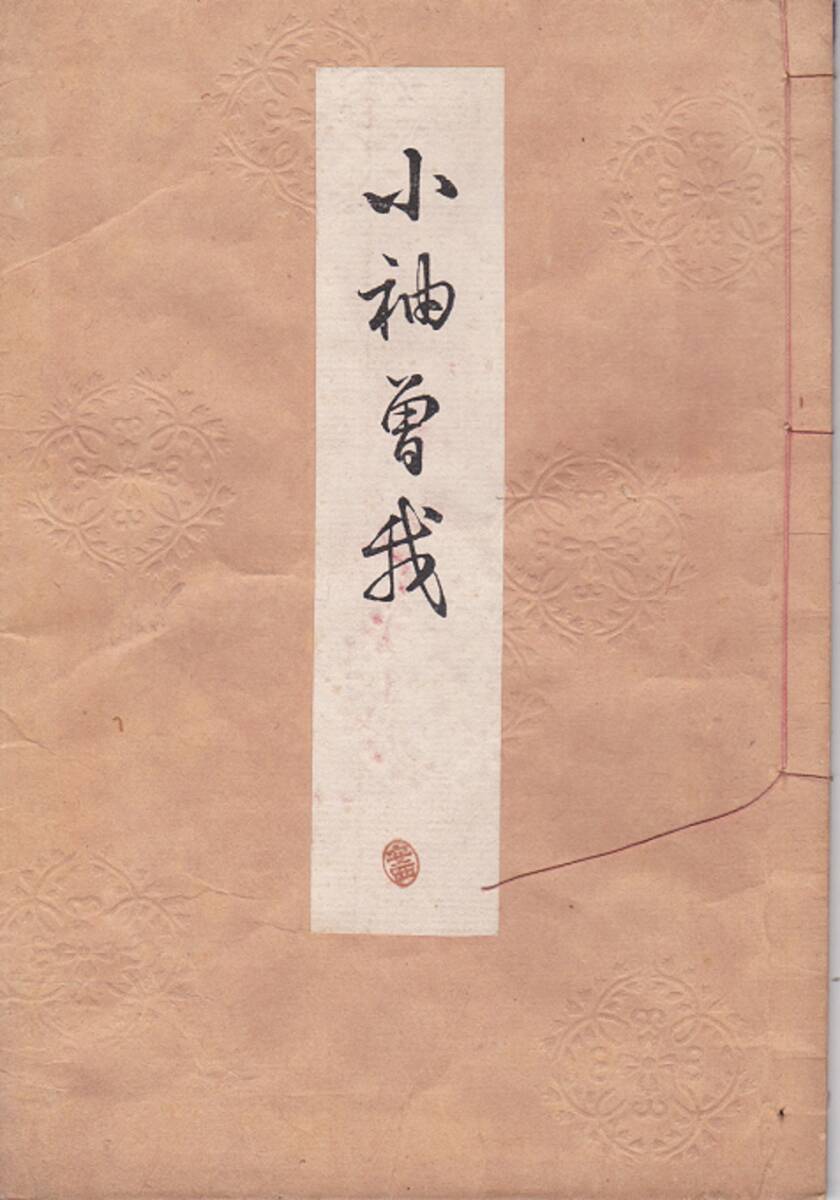 小袖曽我